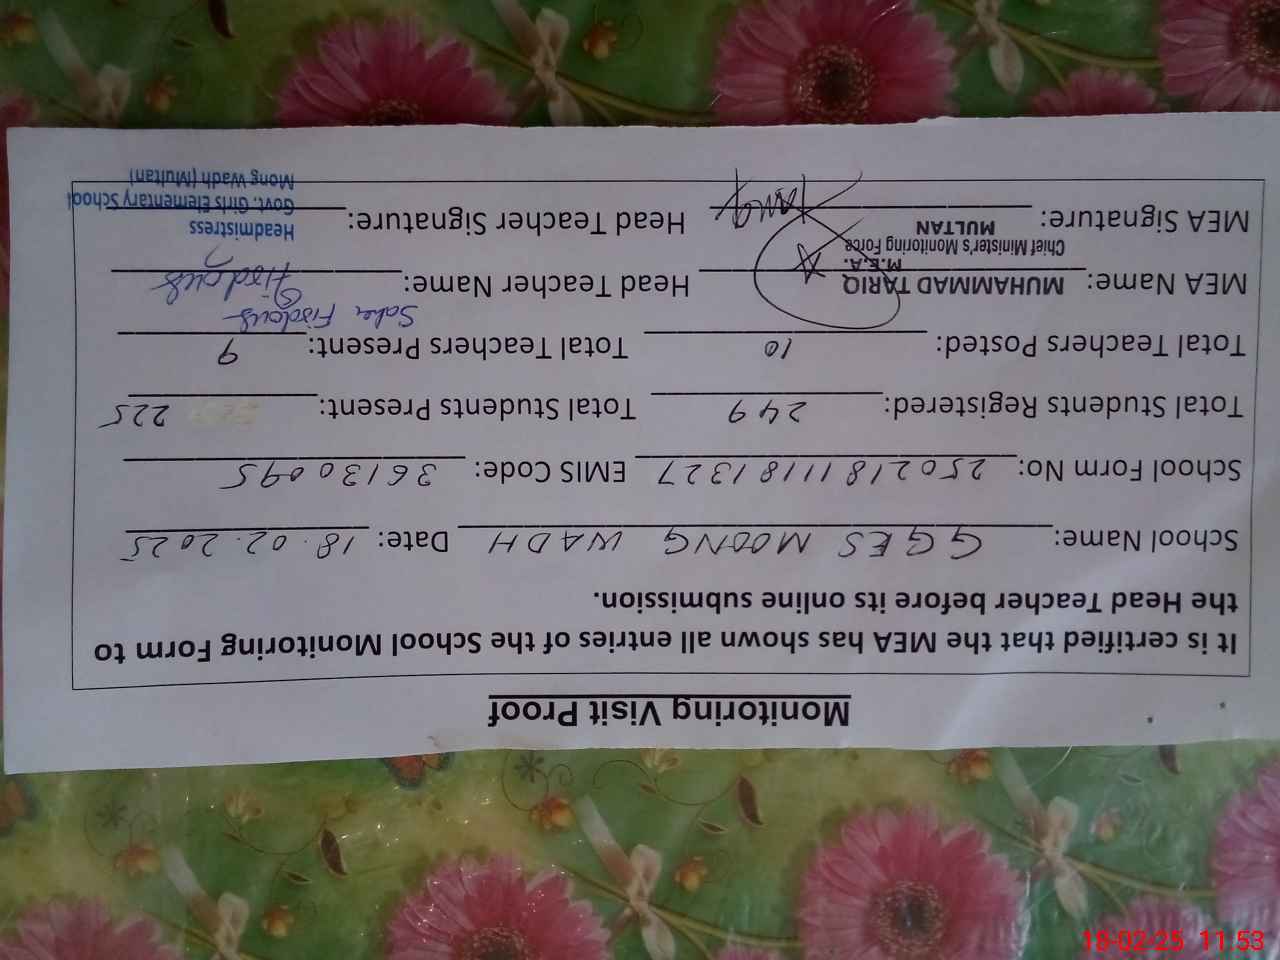 Monitoring Visit Proof
It is certified that the MEA has shown all entries of the School Monitoring Form to
the Head Teacher before its online submission.
School Name: GGES MOONG WADH Date: 18.02.2025
School Form No: 250218111181327 EMIS Code: 36130095
Total Students Registered: 249 Total Students Present: 225
Total Teachers Posted: 10 Total Teachers Present: 9
Saher Firdous
MEA Name: MUHAMMAD TARIQ Head Teacher Name: Firdous
M.E.A.
Chief Minister's Monitoring Force
MULTAN
MEA Signature: Tariq Head Teacher Signature:
Headmistress
Govt. Girls Elementary School
Mong Wadh (Multan)
18-02-25 11:53